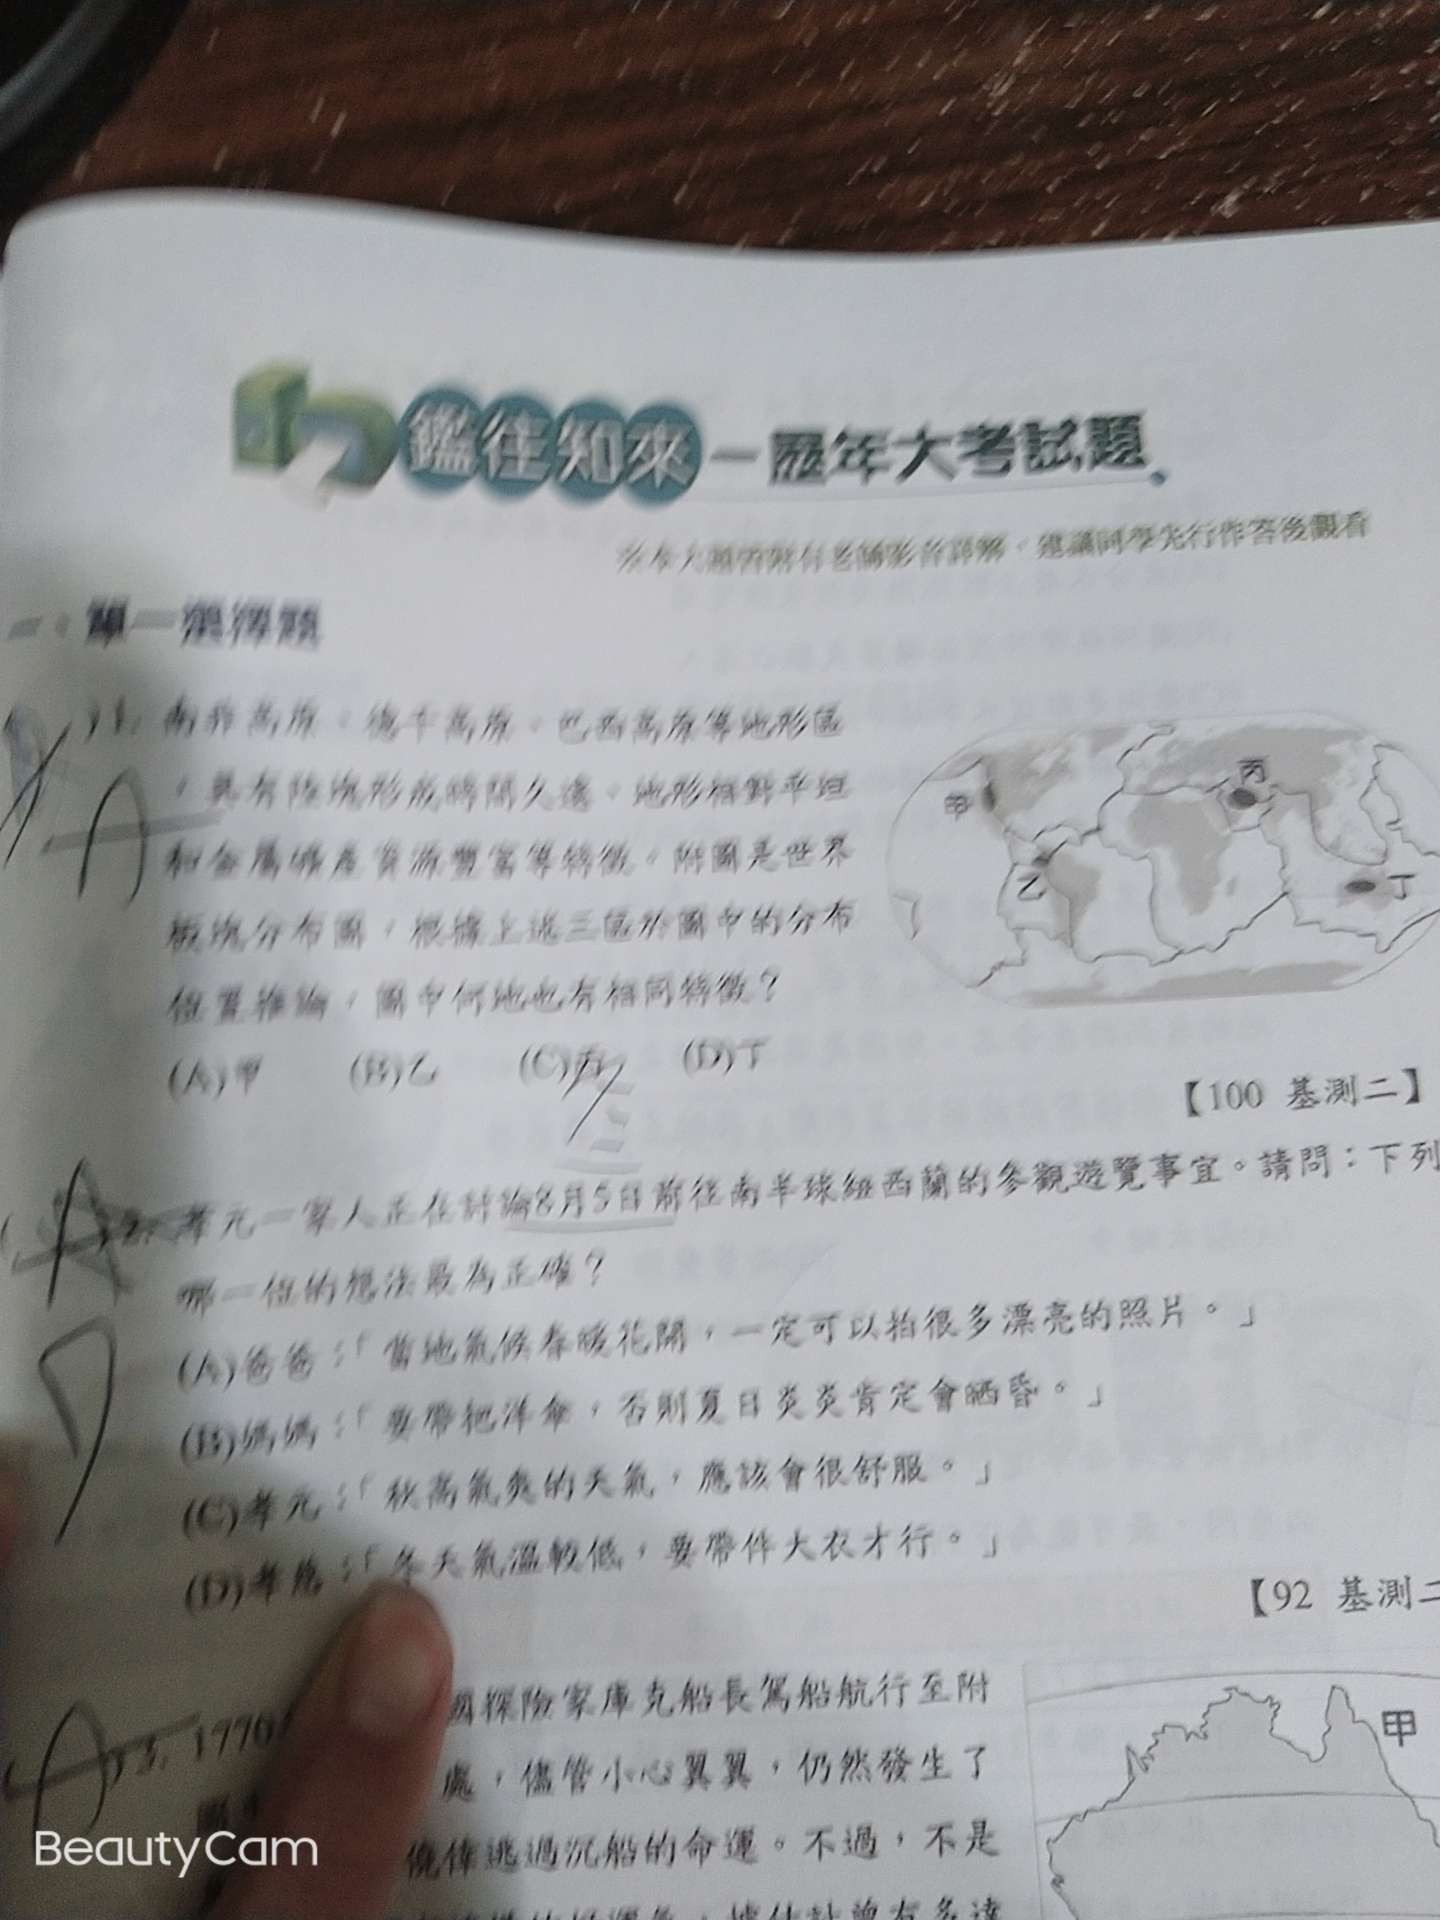 鑑往知來—歷年大考試題
※本大題皆附有老師影音詳解，建議同學先行作答後觀看
一、單一選擇題
)1. 南非高原、德干高原、巴西高原等地形區
，具有陸塊形成時間久遠、地形相對平坦
和金屬礦產資源豐富等特徵。附圖是世界
板塊分布圖，根據上述三區於圖中的分布
位置推論，圖中何地也有相同特徵？
(A)甲 (B)乙 (C)丙 (D)丁
【100 基測二】
甲
乙
丙
丁
A
( A )2. 孝元一家人正在討論8月5日前往南半球紐西蘭的參觀遊覽事宜。請問：下列
哪一位的想法最為正確？
(A)爸爸：「當地氣候春暖花開，一定可以拍很多漂亮的照片。」
(B)媽媽：「要帶把洋傘，否則夏日炎炎肯定會晒昏。」
(C)孝元：「秋高氣爽的天氣，應該會很舒服。」
(D)孝慈：「冬天氣溫較低，要帶件大衣才行。」
【92 基測二
( A )3. 1770
國探險家庫克船長駕船航行至附
處，儘管小心翼翼，仍然發生了
僥倖逃過沉船的命運。不過，不是
據估計曾有多達
甲
BeautyCam